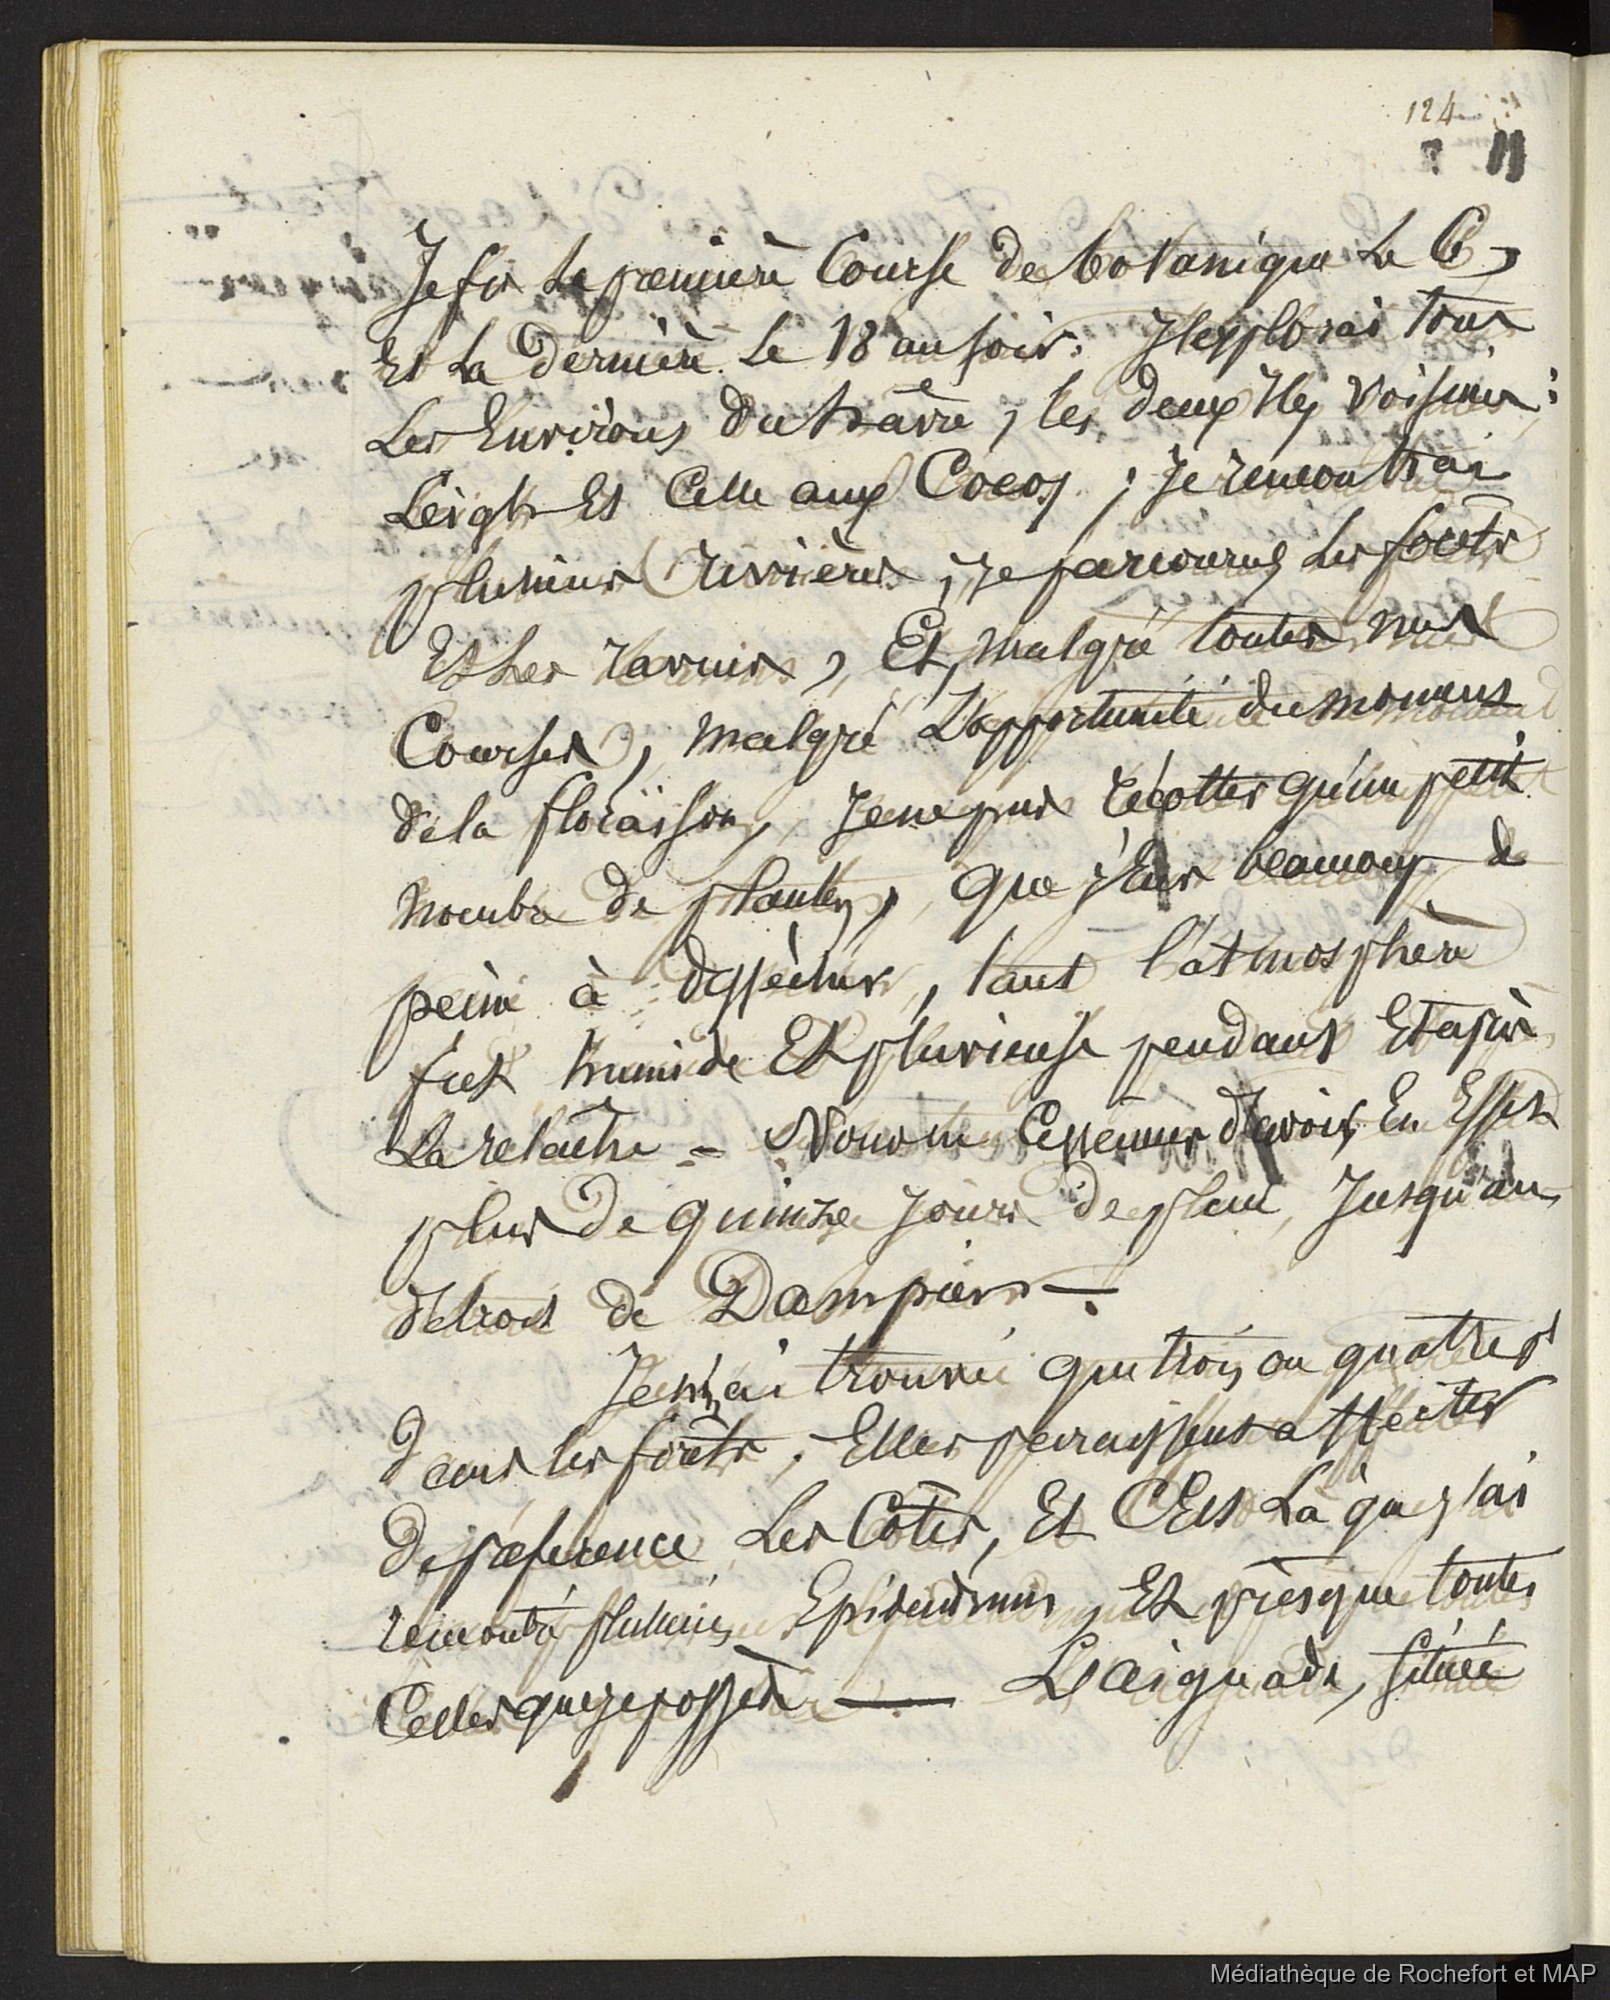 124
Je fis la première Course de botanique le 6,
Et la dernière le 18 au soir. J'explorai tous
Les Environs du hâvre, les deux Iles voisines:
Leigh Et Celle aux Cocos; Je remontrai
plusieurs rivières, je parcourus les forêts
Et les ravins, Et, malgré toutes mes
Courses, malgré L'opportunité du moment
de la floraïson, Je ne pus récolter qu'un petit
nombre de plantes, que j'eus beaucoup de
peine à dessècher, tant l'atmosphère
fut humide Et pluvieuse pendant Et après
La relâche - Nous ne Cessames d'avoir, En Effet
plus de quinze jours de pluie, Jusqu'au
détroit de Dampier -
Je n'ai trouvé que trois ou quatre
dans les forêts; Elles paraissent affecter
de préference Les Côtes, Et C'Est Là que j'ai
rencontré plusieurs Epidendrum, Et presque toutes
Celles que je possède — L'aiguade, située
Médiathèque de Rochefort et MAP